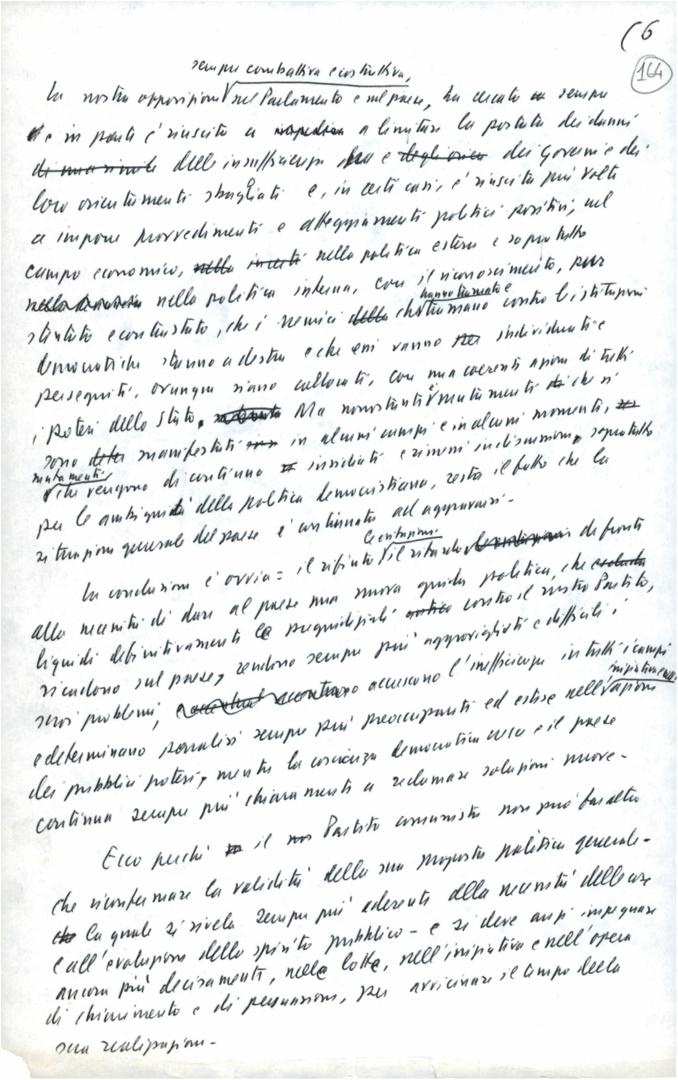 (6
164
sempre combattiva e costruttiva,
La nostra opposizione nel Parlamento e nel paese, ha cercato sempre
e in parte è riuscita a limitare la portata dei danni
delle insufficienze e dei Governi e dei
loro orientamenti sbagliati e, in certi casi, è riuscita più volte
a imporre provvedimenti e atteggiamenti politici positivi, nel
campo economico, nella politica estera e soprattutto
nella politica interna, con il riconoscimento, pur
hanno tramato e
stentato e contrastato, che i nemici che tramano contro le istituzioni
democratiche stanno a destra e che essi vanno individuati e
perseguiti, ovunque siano collocati, con una coerente azione di tutti
i poteri dello Stato. Ma nonostante i mutamenti che si
sono manifestati in alcuni campi e in alcuni momenti,
mutamenti
che vengono di continuo insidiati e rimessi in discussione, soprattutto
per le ambiguità della politica democristiana, resta il fatto che la
situazione generale del paese è continuata ad aggravarsi.
le esitazioni
La conclusione è ovvia: il rifiuto il ritardo di fronte
alla necessità di dare al paese una nuova guida politica, che
liquidi definitivamente le pregiudiziali contro il nostro Partito,
ricadono sul paese, rendono sempre più aggrovigliati e difficili i
suoi problemi, accrescono l'inefficienza in tutti i campi
iniziativa e nell'
e determinano paralisi sempre più preoccupanti ed estese nell'azione
dei pubblici poteri, mentre la coscienza democratica cresce e il paese
continua sempre più chiaramente a reclamare soluzioni nuove.
Ecco perché il Partito comunista non può far altro
che riconfermare la validità della sua proposta politica generale -
la quale si rivela sempre più aderente alla necessità delle cose
e all'evoluzione dello spirito pubblico - e si deve anzi impegnare
ancora più decisamente, nelle lotte, nell'iniziativa e nell'opera
di chiarimento e di persuasione, per avvicinare il tempo della
sua realizzazione.